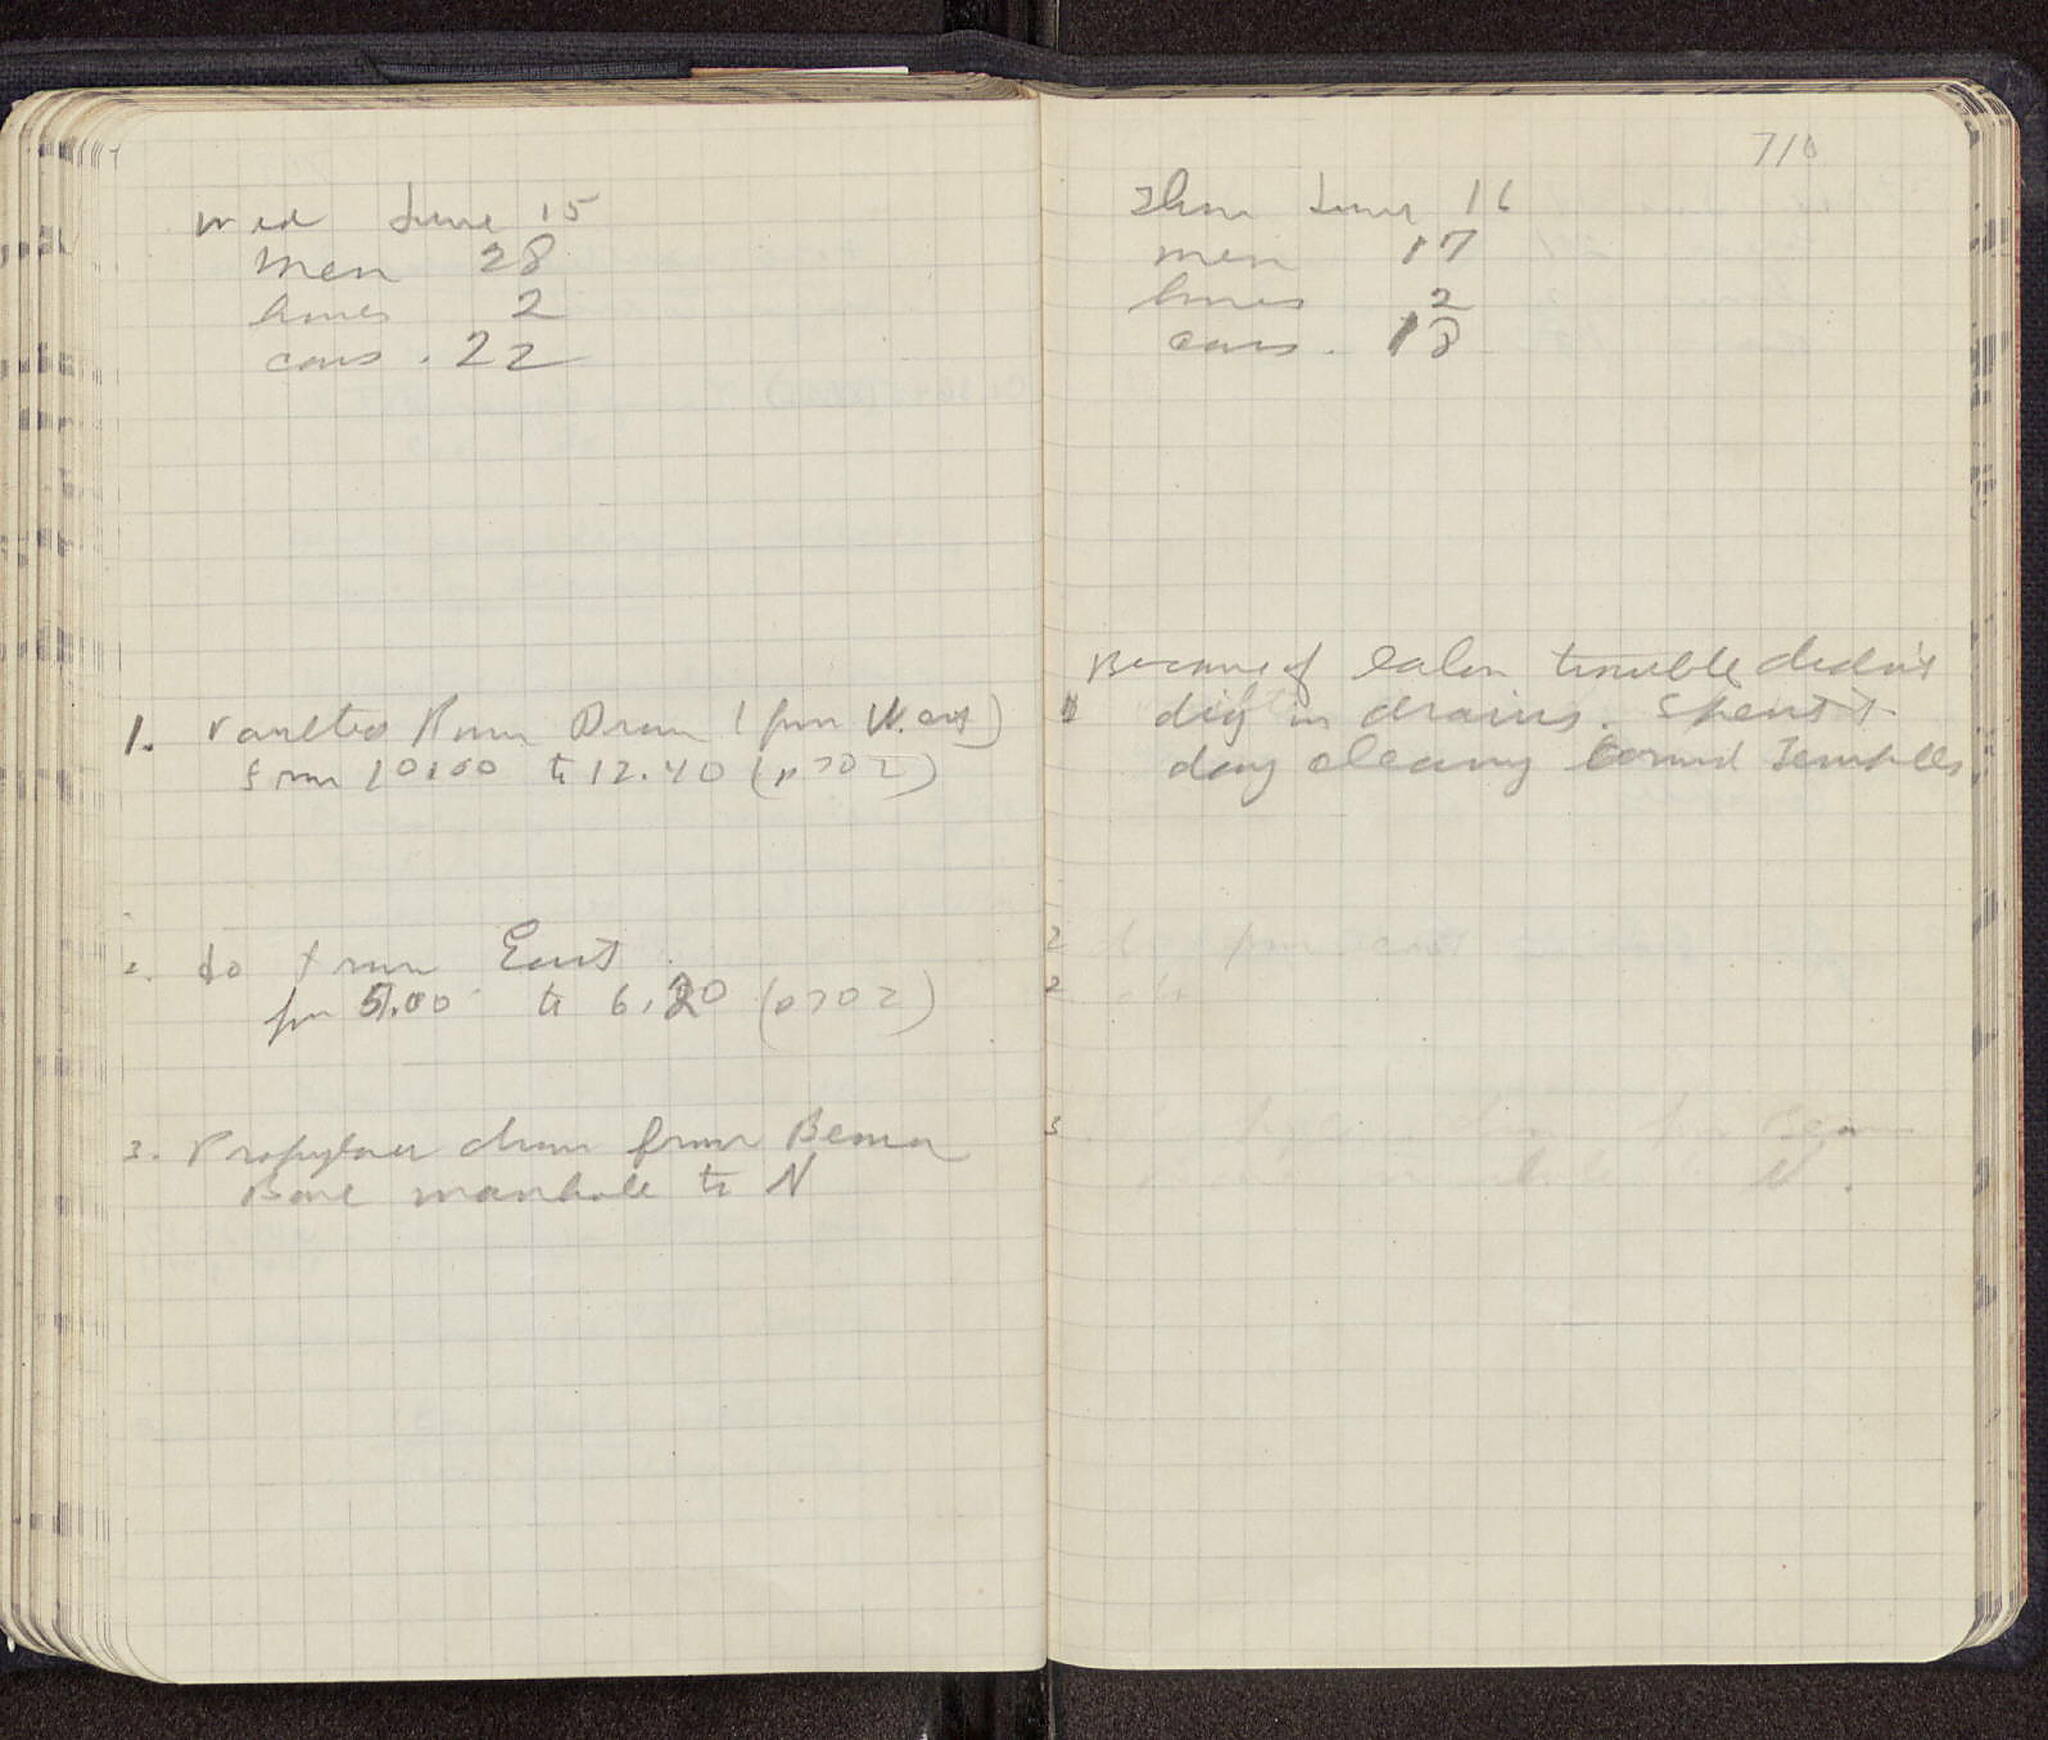 Wed June 15
Men 28
horses 2
cars. 22
1. Vaulted Room Drain (from West)
from 10.00 to 12.40 (p702)
2. do from East.
from 5.00 to 6.20 (p702)
3. Propylaea drain from Bema
Base manhole to N
710
Thur June 16
men 17
horses 2
cars. 18
Because of labor trouble didn't
dig in drains. Spent
day cleaning around Temples
2 do from east
2 do
3 drain from Bema
manhole N.